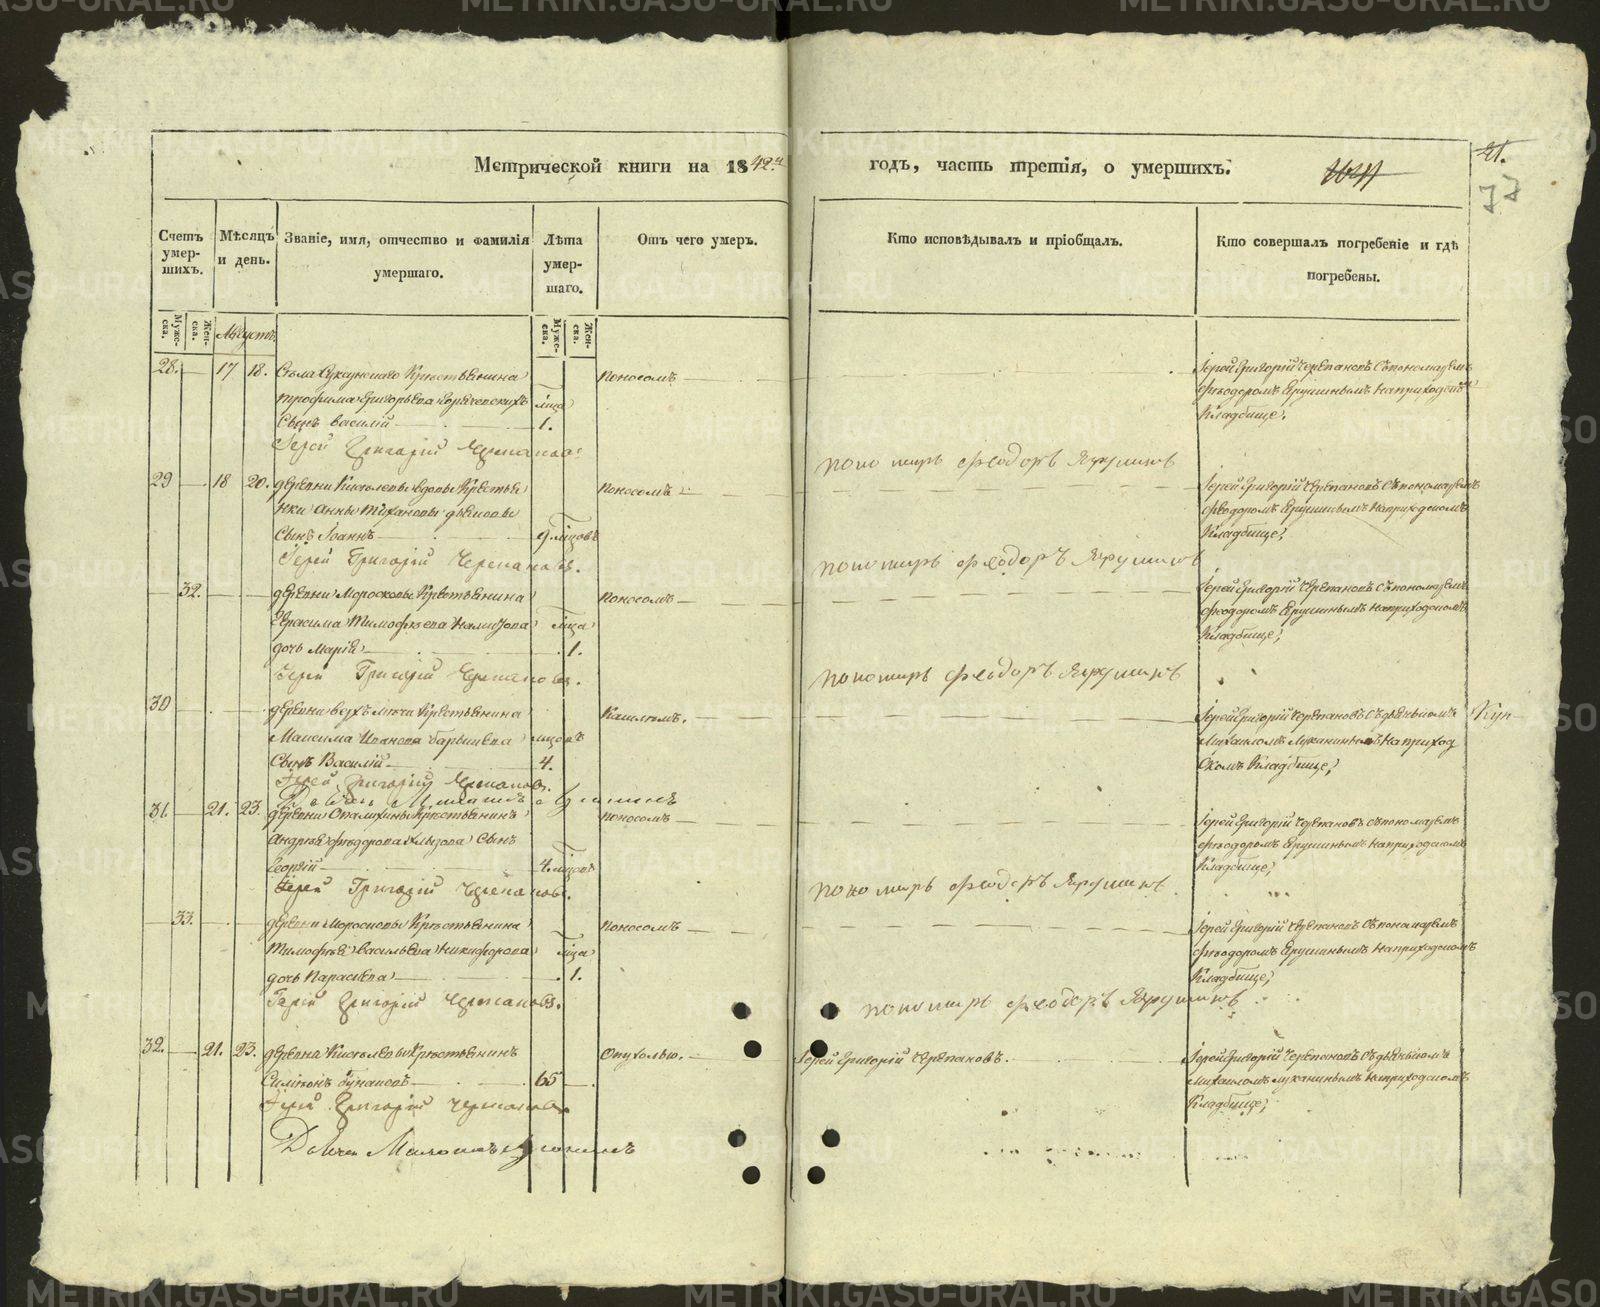 Метрической книги на 1842й
годъ, часть третія, о умершихъ.
21.
77
Счетъ умер-шихъ.
Мѣсяцъ и день.
Званіе, имя, отчество и фамилія умершаго.
Лѣта умер-шаго.
Отъ чего умеръ.
Кто исповѣдывалъ и пріобщалъ.
Кто совершалъ погребеніе и гдѣ погребены.
Муже-ска.
Жен-ска.
Августъ
Муже-ска.
Жен-ска.
28. 17 18. Села Суксунскаго Крестьянина Поносомъ Іерей Григорій Черепановъ Съ пономаремъ
Трофима Григорьева мѣсяца Феодоромъ Ярушинымъ На приходскомъ
Сынъ Василій 1. Кладбище,
Іерей Григорій Черепановъ пономарь Феодоръ Ярушинъ
29 18 20. деревни Киселевы вдовы Крестья Поносомъ Іерей Григорій Черепановъ Съ пономаремъ
нки Анны Феодоромъ Ярушинымъ На приходскомъ
Сынъ Іоаннъ 9 мѣсяцовъ Кладбище,
Іерей Григорій Черепановъ. пономарь Феодоръ Ярушинъ
32. деревни Морозковы Крестьянина Поносомъ Іерей Григорій Черепановъ Съ пономаремъ
Герасима Тимофеева мѣсяца Феодоромъ Ярушинымъ На приходскомъ
дочь Марія 1. Кладбище,
Іерей Григорій Черепановъ. пономарь Феодоръ Ярушинъ
30 деревни Крестьянина Кашлемъ. Іерей Григорій Черепановъ Съ дьячкомъ
Максима Иванова мѣсяцовъ Михаиломъ На приход
Сынъ Василій 4. Скомъ Кладбище,
Іерей Григорій Черепановъ.
Дьячекъ Михаилъ
31. 21. 23. деревни Опалихины Крестьянина Поносомъ Іерей Григорій Черепановъ Съ пономаремъ
Андрея Феодорова Сынъ Феодоромъ Ярушинымъ На приходскомъ
Георгій 4 мѣсяцовъ Кладбище,
Іерей Григорій Черепановъ. пономарь Феодоръ Ярушинъ
33. деревни Морозковы Крестьянина Поносомъ Іерей Григорій Черепановъ Съ пономаремъ
Тимофея Васильева Никифорова мѣсяца Феодоромъ Ярушинымъ На приходскомъ
дочь Параскева 1. Кладбище,
Іерей Григорій Черепановъ. пономарь Феодоръ Ярушинъ
32. 21. 23. деревни Киселевы Крестьянинъ Опухолью. Іерей Григорій Черепановъ. Іерей Григорій Черепановъ Съ дьячкомъ
Симеонъ 65 Михаиломъ На приходскомъ
Іерей Григорій Черепановъ Кладбище,
Дьячекъ Михаилъ
METRIKI.GASO-URAL.RU